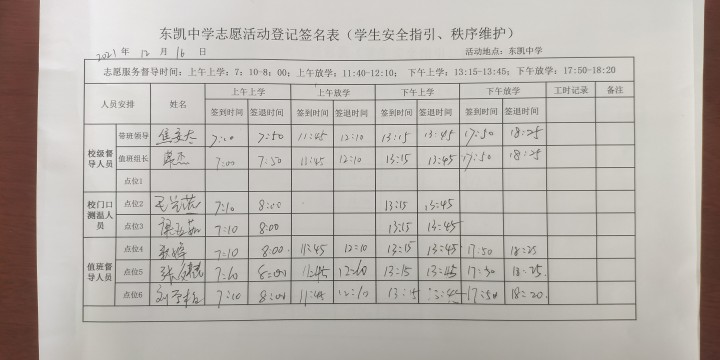 东凯中学志愿活动登记签名表（学生安全指引、秩序维护）
2021 年 12 月 16 日 活动地点：东凯中学
志愿服务督导时间：上午上学：7：10-8：00；上午放学：11:40-12:10； 下午上学：13:15-13:45；下午放学：17:50-18:20
人员安排 姓名 上午上学 上午放学 下午上学 下午放学 工时记录 备注
签到时间 签退时间 签到时间 签退时间 签到时间 签退时间 签到时间 签退时间
校级督导人员 带班领导 7:50 11:45 12:10 13:15 13:45 17:50 18:25
值班组长 7:00 7:50 11:45 12:10 13:15 13:45 17:50 18:25
点位1
校门口测温人员 点位2 7:10 8:00 13:15 13:45
点位3 7:10 8:00 13:15 13:45
值班督导人员 点位4 7:10 8:00 11:45 12:10 13:15 13:45 17:50 18:25
点位5 7:10 8:00 11:45 12:10 13:15 13:45 17:50 18:25
点位6 7:10 8:00 11:45 12:10 13:45 13:45 17:50 18:20